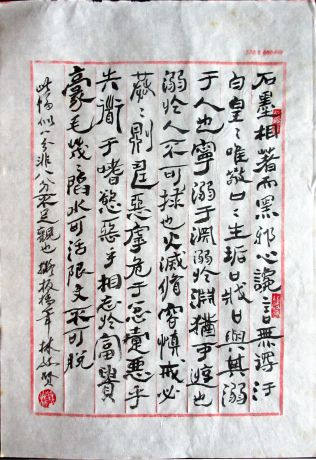 石墨相著而黑邪心讒言無得汙
白皇〻唯敬口〻生垢口戕口與其溺
于人也寧溺于淵溺於淵猶可游也
溺於人不可救也火滅脩容慎戒必
恭〻則壽惡乎危于忿疐惡乎
失道于嗜慾惡乎相忘於富貴
豪毛茂〻陷水可活陷文不可脱
此幅似八分非八分不足觀也擬板橋筆 林 賢